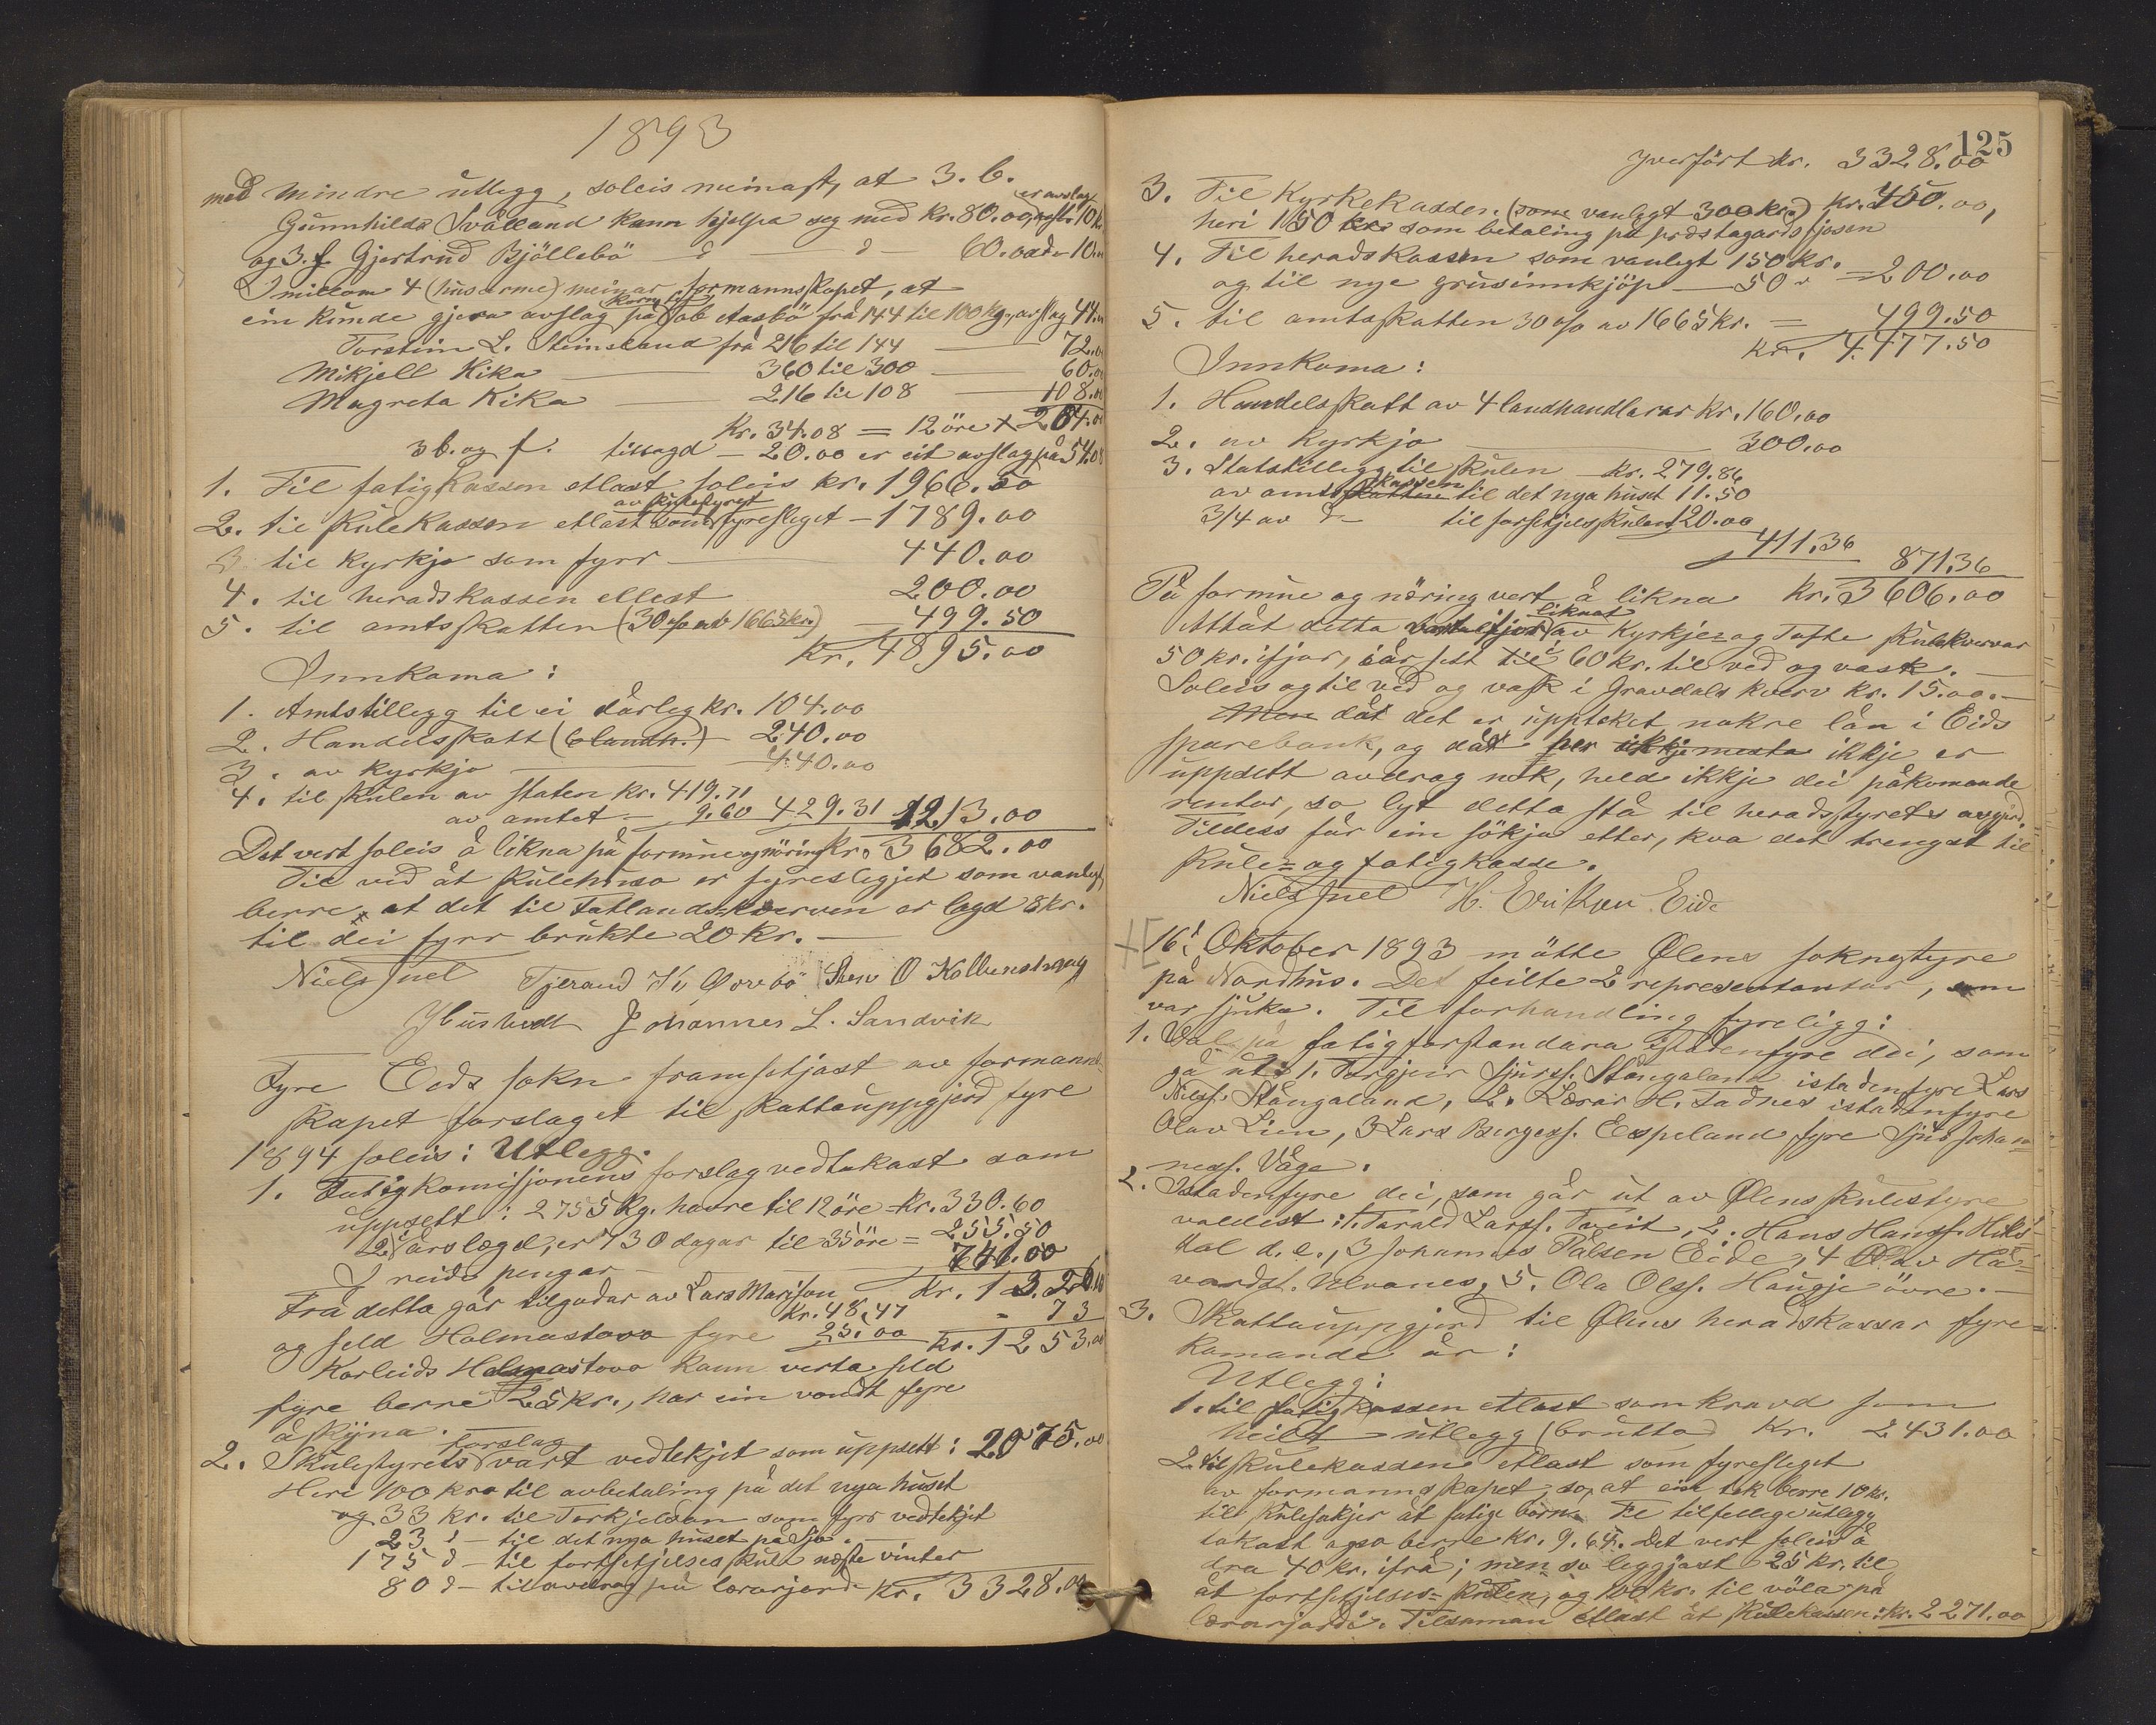 1893
med mindre utlegg, soleis meinast, at 3. b.
Gunnhilda Svålland kann hjelpa seg med kr. 80.00, avslag 10 kr
og 3. f. Gjertrud Bjöllebö d d 60.00 d 10
Imillom 4 (husarme) meinar formannskapet, at
ein kunde gjera avslag på korn til Job Aasbö frå 144 til 100 kg, avslag 44
Torstein L. Steinsland frå 216 til 144 — 72.00
Mikjell Kika — 360 til 300 — 60.00
Magreta Kika — 216 til 108 — 108.00
Kr. 34.08 = 12 öre x 284.00
3 b. og f. tillagd — 20.00 er eit avslag på 54.08
1. Til fatigkassen etlast soleis kr. 1966.50
2. til skulekassen etlast som av skulestyret fyresleget — 1789.00
3 til kyrkjo som fyrr — 440.00
4. til heradskassen etlast 200.00
5. til amtsskatten (30 o/o av 1665 kr.) — 499.50
Kr. 4895.00
Innkoma:
1. Amtstillegg til ei dårleg kr. 104.00
2. Handelsskatt (6 landh.) — 240.00
3. av kyrkjo — 440.00
4. til skulen av staten kr. 419.71
av amtet — 9.60 429.31 1213.00
Det vert soleis å likna på formue og näring kr. 3682.00
Til ved åt skulehuso er fyreslegjet som vanlegt,
berre at det til Tatlands-kverven er lagd 8 kr.
til dei fyrr brukte 20 kr. —
Niels Juel Tjerand K. Ørvbö Sten O Kolbenshaug
Hustvedt Johannes L. Sandvik
Fyre Eids sokn framsetjast av formann-
skapet forslaget til skattauppgjerd fyre
1894 soleis: Utlegg.
1. Fatigkomisjonens forslag vedtakast som
uppsett: 2755 kg. havre til 12 öre = kr. 330.60
2 årslægd, er 730 dagar til 35 öre = 255.50
I reide pengar — 740.00
Kr. 1326.10
Frå detta går tilgodar av Lars Marison
kr. 48.47
og seld Holmastovo fyre 25.00 — 73
kr. 1253.00
Korleids Holmastovo kann verta seld
fyre berre 25 kr., har ein vondt fyre
å skjyna.
2. Skulestyrets forslag vart vedtekjet som uppsett: 2075.00
Heri 100 kr. til avbetaling på det nya huset
og 33 kr. til Torkjeldsen som fyrr vedtekjet
23 d — til det nya huset på Sjo.
175 d — til fortsetjelsesskule næste vinter
80 d — til avdrag på lærarjord. kr. 3328.00
125
yverfört kr. 3328.00
3. Til Kyrkekassen (som vanlegt 300 kr.) kr. 450.00,
heri 150 kr. som betaling på prestagards fjosen
4. Til heradskassen som vanlegt 150 kr.
og til nye grusinnkjöp — 50 " = 200.00
5. til amtsskatten 30 o/o av 1665 kr. = 499.50
kr. 4.477.50
Innkoma:
1. Handelsskatt av 4 landhandlarar kr. 160.00
2. av kyrkjo — 300.00
3. Statstillegg til skulen — kr. 279.86
av amtskassen til det nya huset 11.50
3/4 av d — til forsetjelsskulen 120.00
411.36 871.36
På formue og näring vert å likna kr. 3606.00
Attåt detta liknat av Kyrkje- og Tofte skulekvervar
50 kr. ifjor, iår sett til 60 kr. til ved og vask. —
Soleis og til ved og vask i Gravdals kverv kr. 15.00. —
Men då det er uppteket nokre lån i Eids
sparebank, og då ikkje er
uppsett avdrag nok, held ikkje dei påkomande
rentor, so lyt detta stå til heradsstyrets avgjerd.
Tildess får ein sökja etter, kva det trengst til
skule- og fatigkasse.
Niels Juel H. Eriksen Eide
16d Oktober 1893 mötte Ølens soknestyre
på Nordhus. Det feilte 2 representantar, som
var sjuke. Til forhandling fyreligg:
1. Val på fatigforstandara istadenfyre dei, som
gå ut: 1. Torgjeir Sjurss. Stångaland istadenfyre Lars
Nilss. Stångaland, 2. Lærar H. Tadnes istadenfyre
Olav Lien, 3 Lars Bergess. Espeland fyre Sjur Johan-
ness. Våge.
2. Istadenfyre dei, som går ut av Ølens skulestyre
valdist: 1. Tarald Larss. Tveit, 2. Hans Hanss. Hiks-
dal d. e., 3 Johannes Pålsen Eide, 4 Olav Hå-
vardst. Ulvanes, 5. Ola Olss. Haugje övre. —
3. Skattauppgjerd til Ølens heradskassar fyre-
komande år:
Utlegg:
1. til fatigkassen etlast som kravd som
heilt utlegg (brutto) kr. 2431.00
2. til skulekassen etlast som fyresleget
av formannskapet, so, at ein tek berre 10 kr.
til skulesakjer åt fatige born. Te tilfellege utlegg
takast ogso berre kr. 9.64. Det vert soleis å
dra 40 kr. ifrå; men so leggjast 25 kr. til
åt fortsetjelses-skulen, og 100 kr. til völa på
lærarjordi. Tilsaman etlast åt skulekassen: kr. 2271.00